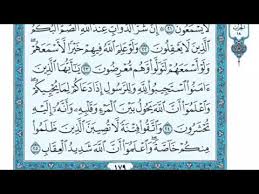 لَا يَسْمَعُونَ ۝٢١ إِنَّ شَرَّ الدَّوَابِّ عِندَ اللَّهِ الصُّمُّ الْبُكْمُ
الَّذِينَ لَا يَعْقِلُونَ ۝٢٢ وَلَوْ عَلِمَ اللَّهُ فِيهِمْ خَيْرًا لَّأَسْمَعَهُمْ
وَلَوْ أَسْمَعَهُمْ لَتَوَلَّوا وَّهُم مُّعْرِضُونَ ۝٢٣ يَا أَيُّهَا الَّذِينَ
آمَنُوا اسْتَجِيبُوا لِلَّهِ وَلِلرَّسُولِ إِذَا دَعَاكُمْ لِمَا يُحْيِيكُمْ
وَاعْلَمُوا أَنَّ اللَّهَ يَحُولُ بَيْنَ الْمَرْءِ وَقَلْبِهِ وَأَنَّهُ إِلَيْهِ
تُحْشَرُونَ ۝٢٤ وَاتَّقُوا فِتْنَةً لَّا تُصِيبَنَّ الَّذِينَ ظَلَمُوا
مِنكُمْ خَاصَّةً وَاعْلَمُوا أَنَّ اللَّهَ شَدِيدُ الْعِقَابِ ۝٢٥
١٧٩